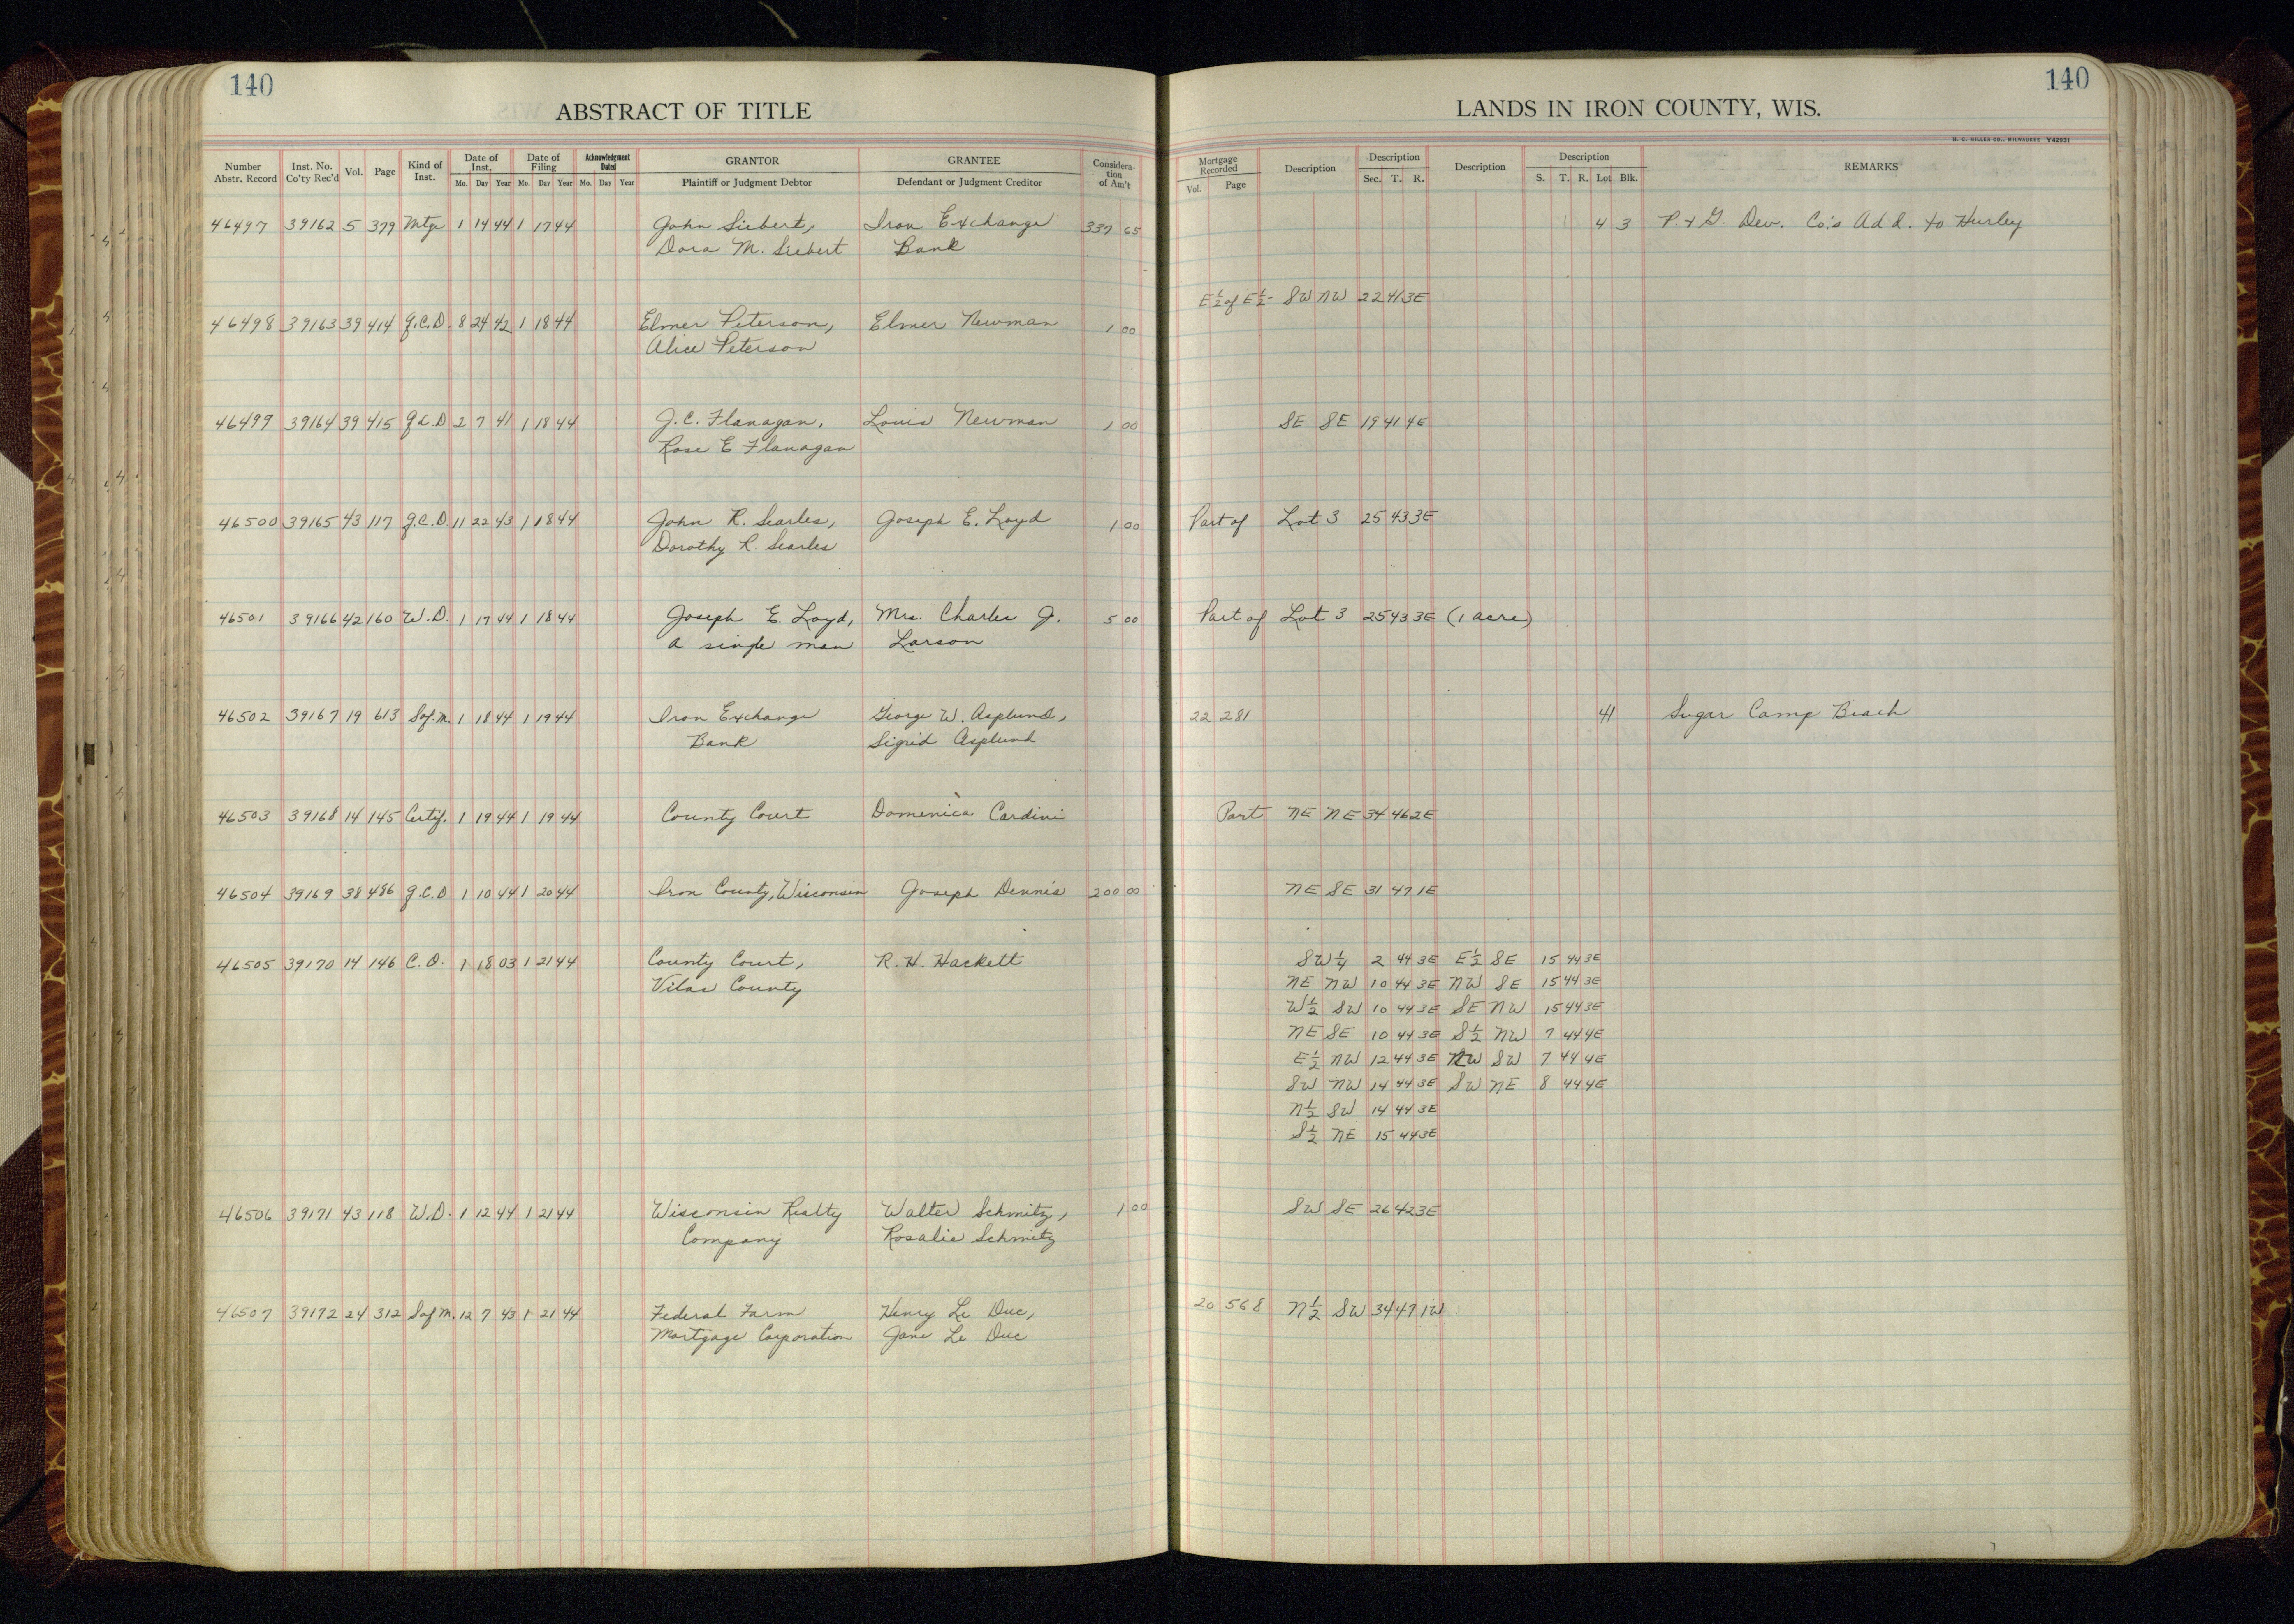 140
ABSTRACT OF TITLE
Number Abstr. Record Inst. No. Co'ty Rec'd Vol. Page Kind of Inst. Date of Inst. Mo. Day Year Date of Filing Mo. Day Year Acknowledgment Dated Mo. Day Year GRANTOR Plaintiff or Judgment Debtor GRANTEE Defendant or Judgment Creditor Considera-tion of Am't
46497 39162 5 379 Mtge 1 14 44 1 17 44 John Siebert, Iron Exchange 337 65
Dora M. Siebert Bank
46498 39163 39 414 Q.C.D. 8 24 42 1 18 44 Elmer Peterson, Elmer Newman 1 00
Alice Peterson
46499 39164 39 415 Q.C.D 2 7 41 1 18 44 J.C. Flanagan, Louis Newman 1 00
Rose E. Flanagan
46500 39165 43 117 Q.C.D. 11 22 43 1 18 44 John R. Searles, Joseph E. Loyd 1 00
Dorothy R. Searles
46501 39166 42 160 W.D. 1 17 44 1 18 44 Joseph E. Loyd, Mrs. Charles J. 5 00
a single man Larson
46502 39167 19 613 Sof.m. 1 18 44 1 19 44 Iron Exchange George W. Asplund,
Bank Sigrid Asplund
46503 39168 14 145 Certif. 1 19 44 1 19 44 County Court Domenica Cardini
46504 39169 38 486 Q.C.D 1 10 44 1 20 44 Iron County, Wisconsin Joseph Dennis 200 00
46505 39170 14 146 C.O. 1 18 03 1 21 44 County Court, R.H. Hackett
Vilas County
46506 39171 43 118 W.D. 1 12 44 1 21 44 Wisconsin Realty Walter Schmitz, 1 00
Company Rosalie Schmitz
46507 39172 24 312 Sof M. 12 7 43 1 21 44 Federal Farm Henry Le Duc,
Mortgage Corporation Jane Le Duc
140
LANDS IN IRON COUNTY, WIS.
H. C. MILLER CO., MILWAUKEE Y42931
Mortgage Recorded Vol. Page Description Description Sec. T. R. Description Description S. T. R. Lot Blk. REMARKS
4 3 P. & G. Dev. Co.'s Add. to Hurley
E½ of E½- SW NW 22 41 3E
SE SE 19 41 4E
Part of Lot 3 25 43 3E
Part of Lot 3 25 43 3E (1 acre)
22 281 41 Sugar Camp Beach
Part NE NE 34 46 2E
NE SE 31 47 1E
SW¼ 2 44 3E E½ SE 15 44 3E
NE NW 10 44 3E NW SE 15 44 3E
W½ SW 10 44 3E SE NW 15 44 3E
NE SE 10 44 3E S½ NW 7 44 4E
E½ NW 12 44 3E NW SW 7 44 4E
SW NW 14 44 3E SW NE 8 44 4E
N½ SW 14 44 3E
S½ NE 15 44 3E
SW SE 26 42 3E
20 568 N½ SW 34 47 1W